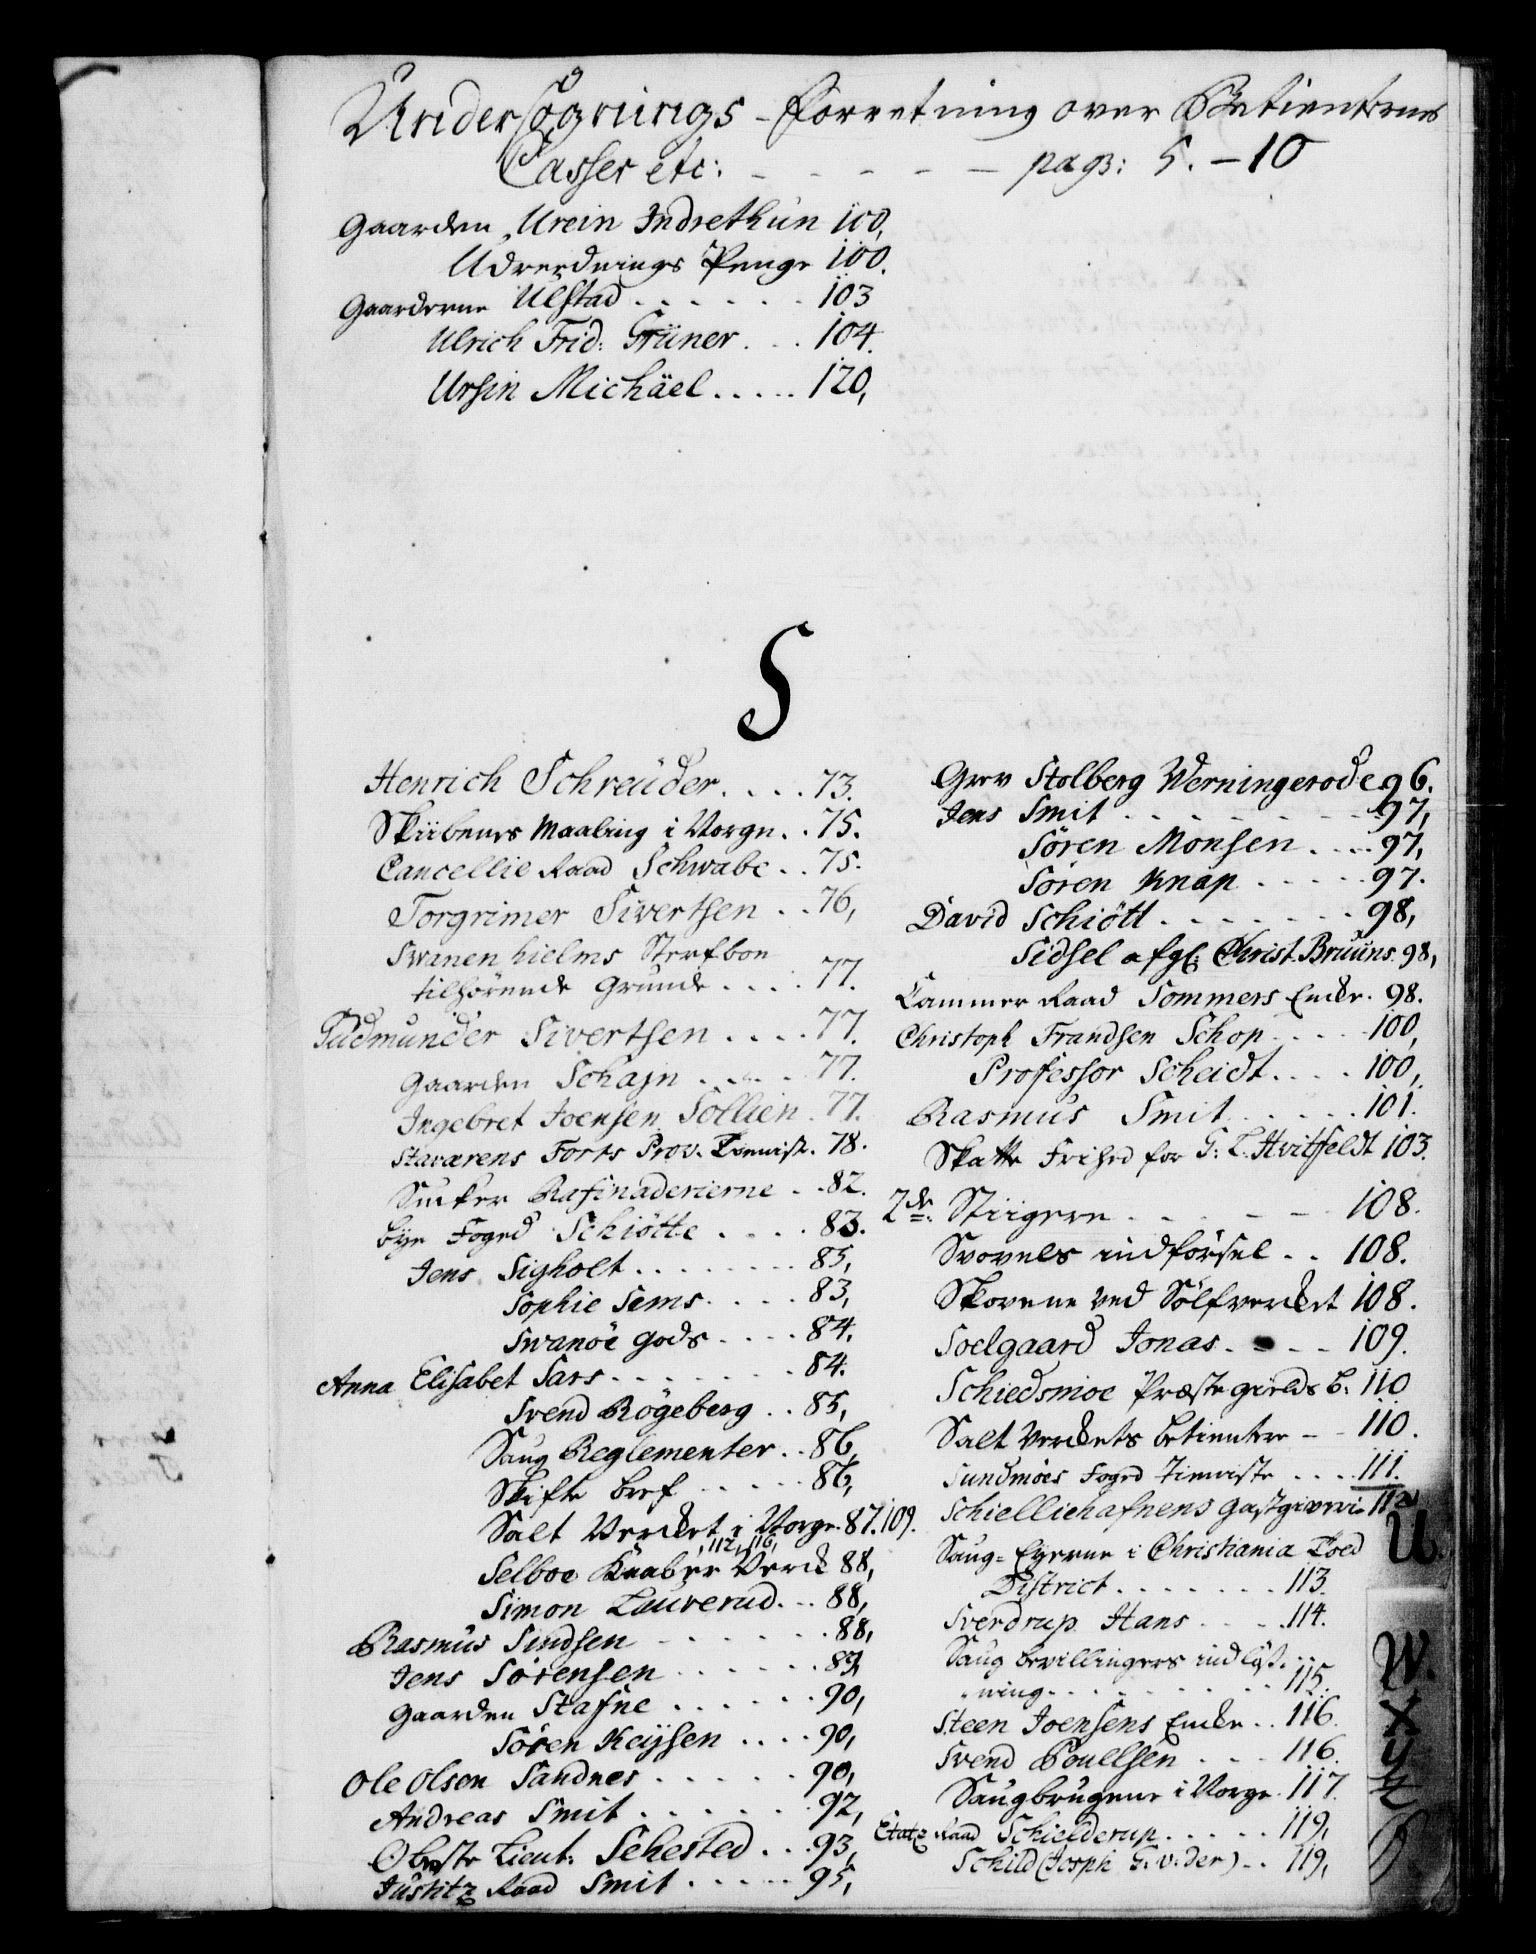 Undersøgnings-Forretning over Betienternes
Casser etc: - - - - - pag: 5. - 10
Gaarden Urein Indrethun 100,
Udrednings Penge 100.
Gaarderne Ulstad . . . . . . 103
Ulrich Frid: Grüner . . . 104.
Ursin Michäel . . . . . 120,
S
Henrich Schreuder . . . . 73.
Skibenes Maaling i Norge . . 75.
Cancellie Raad Schwabe . . 75.
Torgrimer Sivertsen . . 76,
Svanenhielms Sterfboe
tilhørende Grunde . . . . 77.
Gudmunder Sivertsen . . . . 77.
Gaarden Schajn . . . . 77.
Ingebret Joensen Sollien . 77.
Staværens Forts Prov. . 78.
Sucker Rafinaderierne . . 82.
bye Foged Schiøtte . . . . 83.
Jens Sigholt . . . . . . . . 83,
Sophie Sems . . . . 83,
Svanöe Gods . . . . 84,
Anna Elisabet Sars . . . . . . . 84.
Svend Rögeberg . . 85,
Saug Reglementer . . 86,
Skifte bref . . . . . 86,
Salt Verket i Norge 87. 109.
, 112, 116,
Selboe Kaaber Verk 88,
Simon Lauverud . . . 88,
Rasmus Sindsen . . . . . . . 88,
Jens Sörensen . . . . . . 89,
Gaarden Stafne . . . . . . 90,
Sören Keysen . . . . 90,
Ole Olsen Sandnes . . . . . . 90,
Andreas Smit . . . . . . . 92,
Obrste Lieut: Sehested . . . 93,
Justitz Raad Smit . . . . . 95,
Grev Stolberg Werningerode 96.
Jens Smit . . . . . . . . . 97,
Sören Monsen . . . . 97,
Sören Knap . . . . . 97.
David Schiött . . . . . . . 98,
Sidsel afgl: Christ. Bruuns. 98,
Cammer Raad Sommers Enke . 98.
Christoph Frandsen Schop . . . . 100,
Professor Scheidt . . . . 100,
Rasmus Smit . . . . . . 101.
Skatte Frihed for Hvitfeldt 103.
2de: Stiigere . . . - - 108.
Svovels indförsel . . 108.
Skovene ved Sölfverket 108.
Soelgaard Jonas . . . . 109.
Schiedsmoe Præstegields b: 110
Salt Verkets betientere - - 110.
Sundmöes Foged . . . . 111.
Schielliehafnens Gastgiverie 112
Saug-Eyerne i Christiania Toed
District . . . . . . . . 113.
Sverdrup Hans . . . . 114.
Saug bevillingers indlös-
ning . . . . . . . . . 115.
Steen Joensens Enke . . 116.
Svend Pouelsen . . . 116.
Saugbrugene i Norge . 117.
Etatz Raad Schielderup . . . . . 119,
Schild (Joseph G: v: der) . . 119,
U.
W.
X